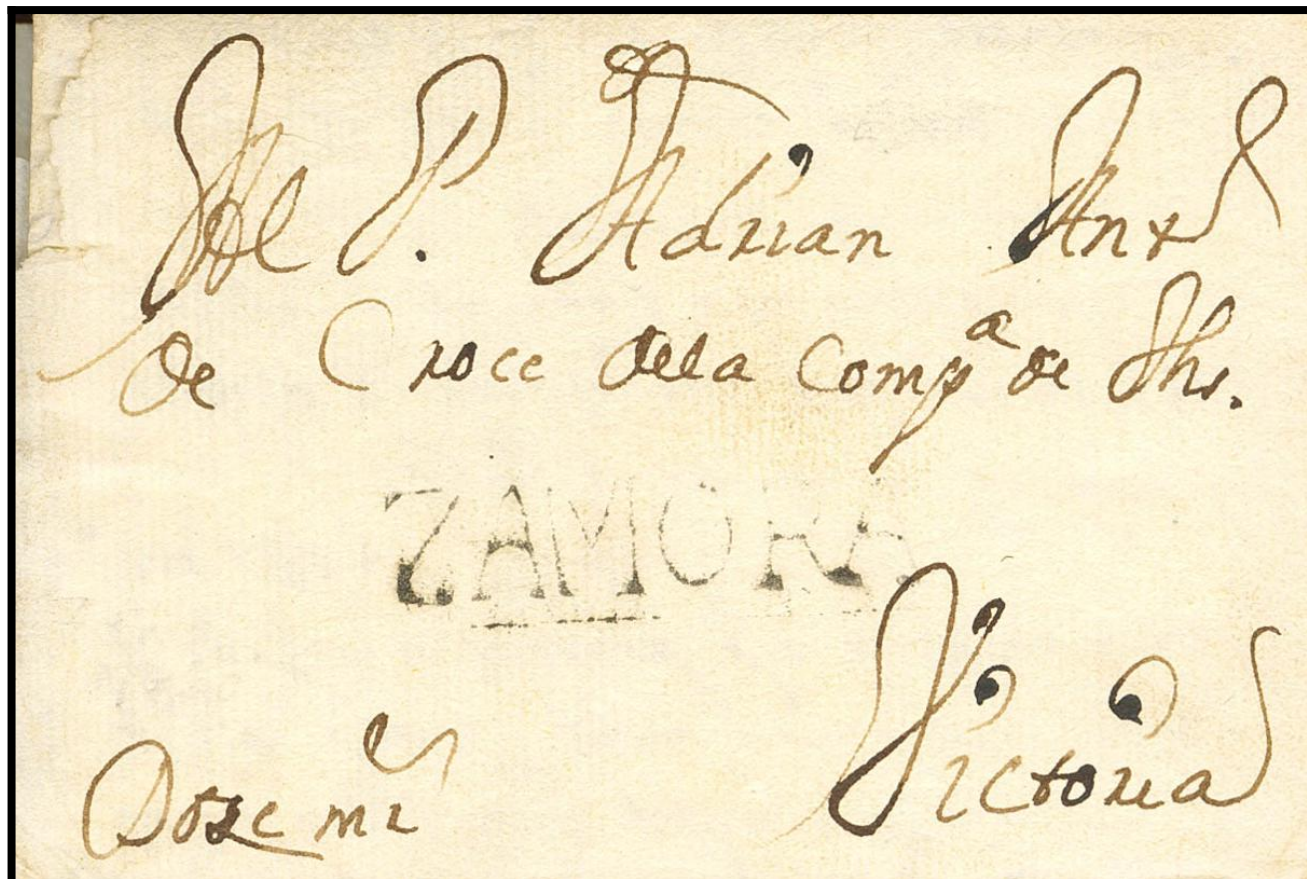 Al P. Adrian Antº
de Croce dela Compª de Jhs.
ZAMORA
Victoria